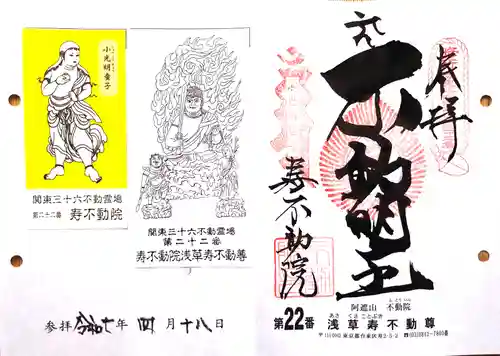 小光明童子
関東三十六不動霊場
第二十二番 寿不動院
関東三十六不動霊場
第二十二番
寿不動院浅草寿不動尊
参拝 令和七年 四月十八日
奉拝
不動明王
寿不動院
阿遮山 不動院
ふどういん
あさ くさ ことぶき
第22番 浅草寿不動尊